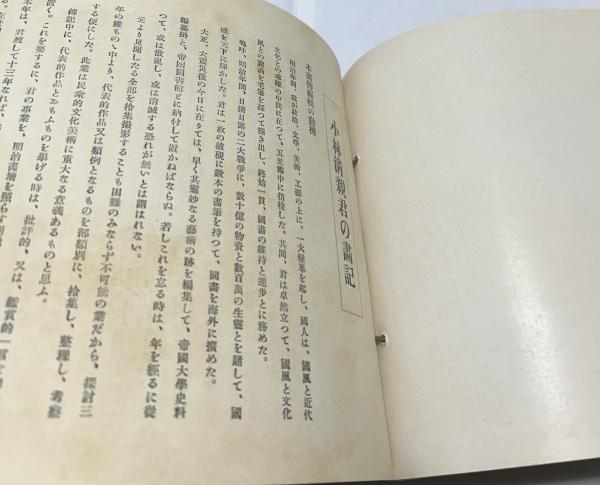 小林淸親君の畫記
本畫傳編輯の動機
明治年間、我が政治、文學、美術、工藝の上に、一大變革を起し、國人は、國風と近代
文化との過渡の中間に在つて、五里霧中に彷徨した。其間、君は卓然立つて、國風と文化
風との旋渦を毛筆を揮つて描き出し、終始一貫、國畫の維持と進步とに務めた。
嗚呼、明治年間、日淸日露の二大戰爭に、數十億の物資と數百萬の生靈とを賭して、國
威を天下に輝かした。君は一枚の破硯に數本の畫筆を持つて、國畫を海外に擴めた。
大正、大震災後の今日に在りては、早く其靈妙なる藝術の跡を編集して、帝國大學史料
編纂掛と、帝國圖書館とに納付して置かねばならぬ。若しこれを忘る時は、年を經るに從
つて、或は散亂し、或は消滅する恐れが無いとは謂はれない。
元より見聞したる全部を拾集撮影することも困難のみならず不可能の業だから、探討三
年の獲もの丶中より、代表的作品又は類例となるものを部類別に、拾集し、整理し、考察
する便にした。此業は民衆的文化美術に重大なる意義あるものと思ふ。
傳記中に、代表的作品とおもふものを擧げる時は、批評的、又は、鑑賞的一言を
置く。これを要するに、君の事業を、明治畫壇を照らす
本年は、君歿して十三年なれば、